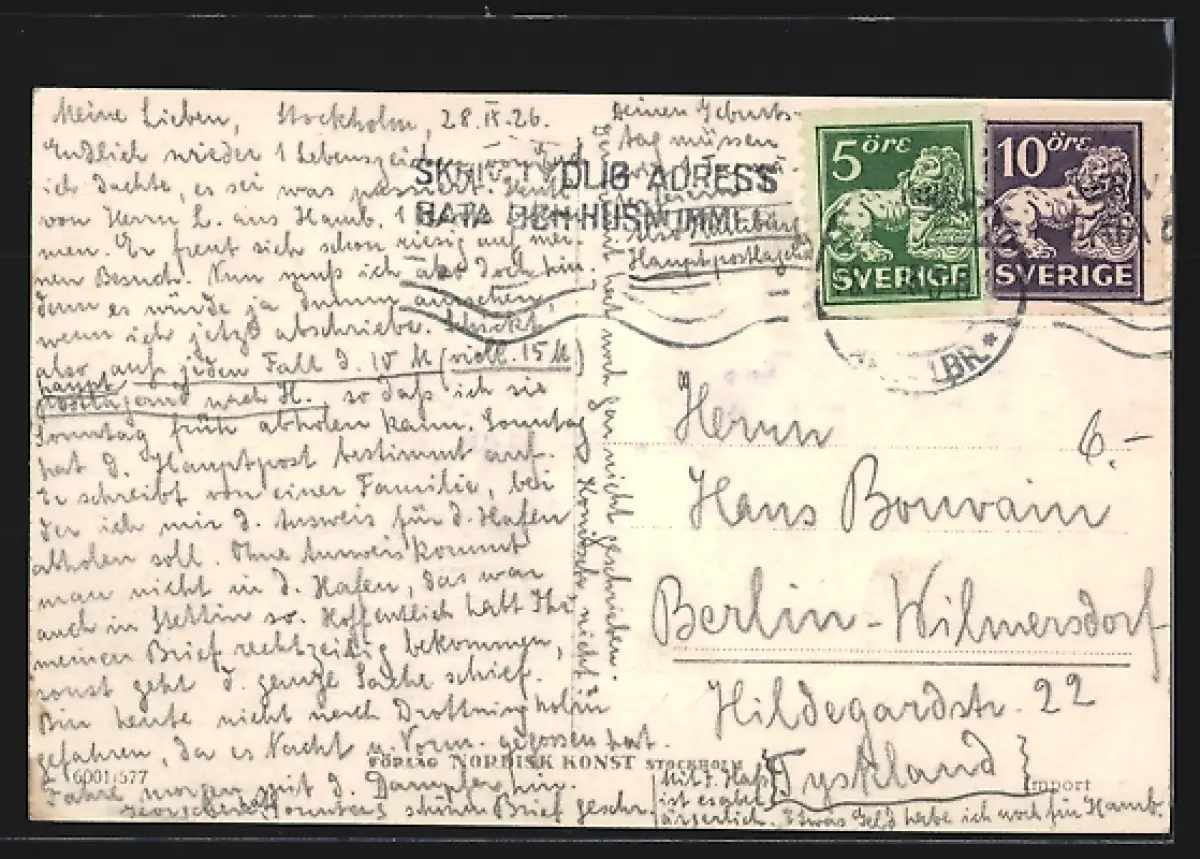 Meine Lieben, Stockholm, 28.IX.26.
Endlich wieder 1 Lebenszeichen von
ich dachte, es sei was passiert. Heute
von Herrn L. aus Hamb. 1
men. Er freut sich schon riesig auf mei-
nen Besuch. Nun muß ich also doch hin,
denn es würde ja dumm aussehen,
wenn ich jetzt abschriebe. Schickt
also auf jeden Fall d. 10 M (viell. 15 M)
haupt
postlagernd nach H., so daß ich sie
Sonntag früh abholen kann. Sonntag
hat d. Hauptpost bestimmt auf.
Er schreibt von einer Familie, bei
der ich mir d. Ausweis für d. Hafen
abholen soll. Ohne Ausweis kommt
man nicht in d. Hafen, das war
auch in Stettin so. Hoffentlich habt Ihr
meinen Brief rechtzeitig bekommen,
sonst geht d. ganze Sache schief.
Bin heute nicht nach Drottningholm
gefahren, da es Nacht u. Vorm. gegossen hat.
Fahre morgen mit d. Dampfer hin.
Brief geschr.
hat noch gar nicht geschrieben.
Komisch, nicht?
Deinen Geburts-
tag müssen
wir
feiern
Also
Hauptpostlagernd
SKRIV TYDLIG ADRESS
GATA OCH HUSNUMMER
5 ÖRE
SVERIGE
10 ÖRE
SVERIGE
LBR.
6.-
Herrn
Hans Bouvain
Berlin-Wilmersdorf
Hildegardstr. 22
Tyskland
FÖRLAG NORDISK KONST STOCKHOLM
6001/577
Import
Mit d.
ist es aber
ärgerlich. Etwas Geld habe ich noch für Hamb.